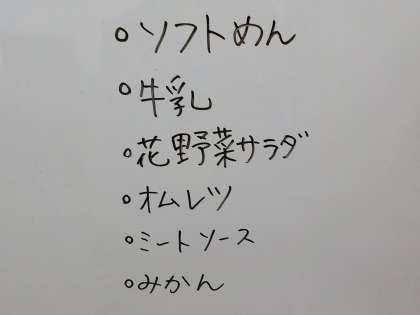 ○ソフトめん
○牛乳
○花野菜サラダ
○オムレツ
○ミートソース
○みかん